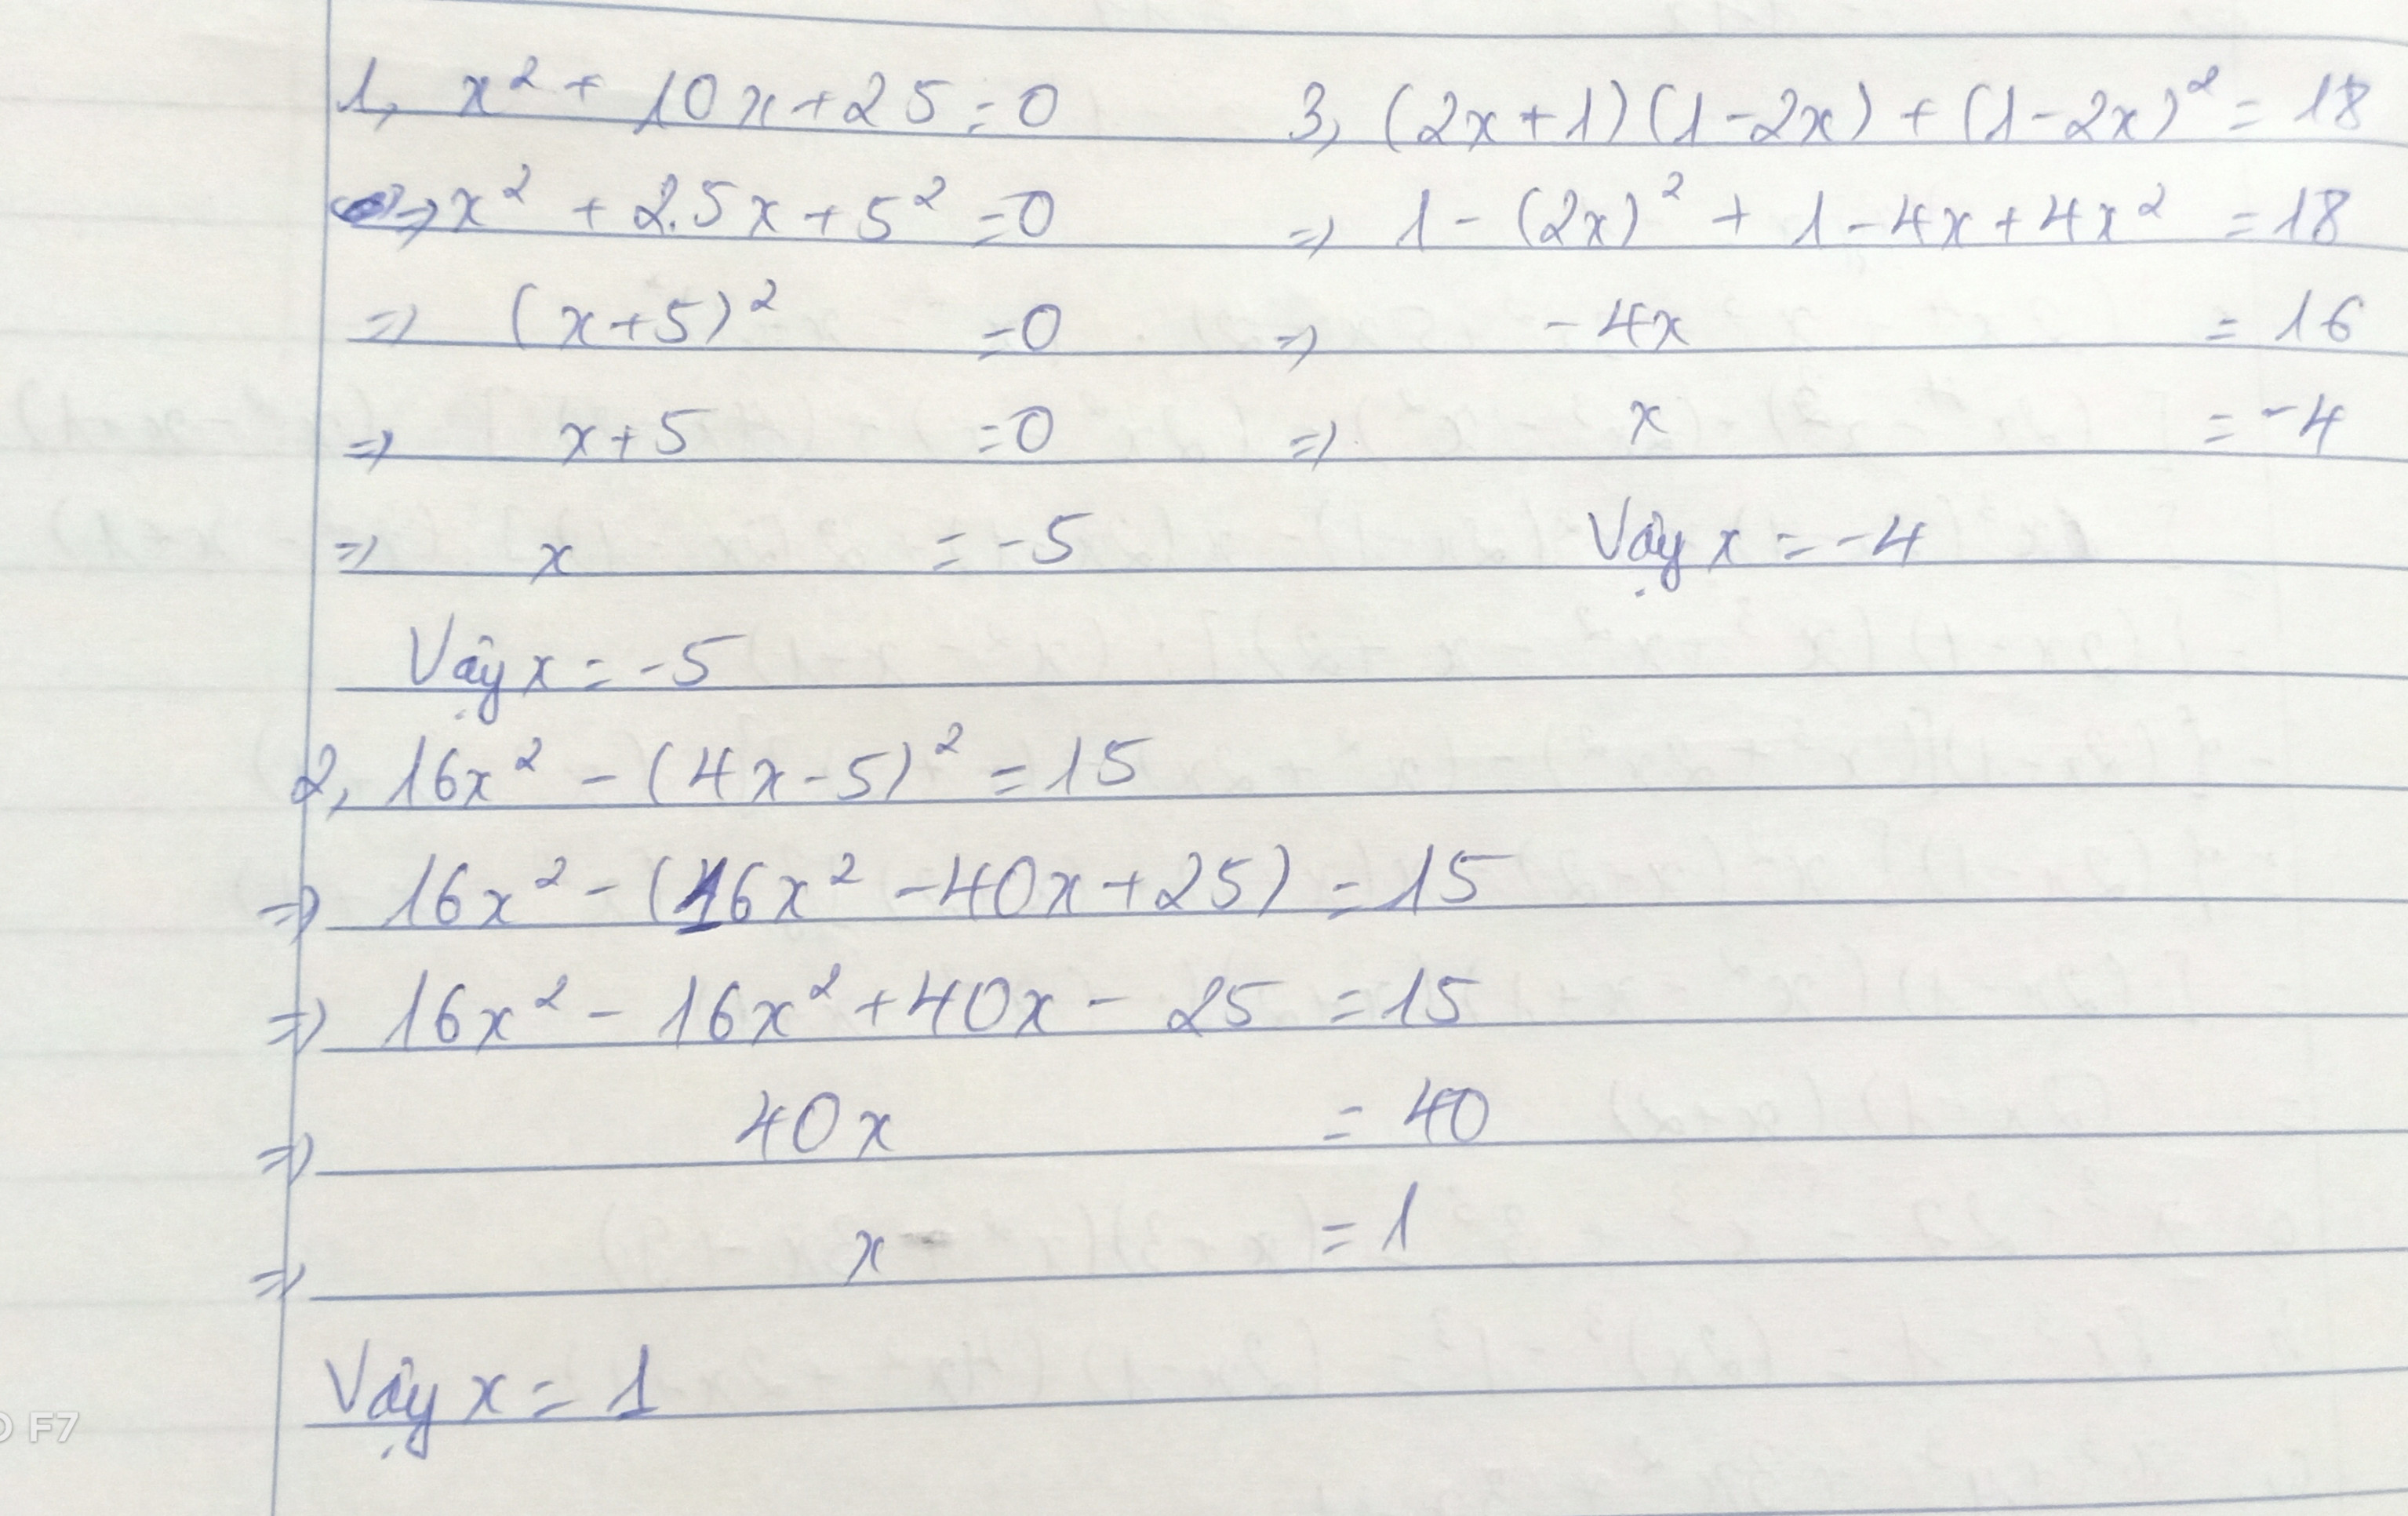 1, x² + 10x + 25 = 0
=> x² + 2.5x + 5² = 0
=> (x+5)² = 0
=> x+5 = 0
=> x = -5
Vậy x = -5
2, 16x² - (4x-5)² = 15
=> 16x² - (16x² - 40x + 25) = 15
=> 16x² - 16x² + 40x - 25 = 15
=> 40x = 40
=> x = 1
Vậy x = 1
3, (2x+1)(1-2x) + (1-2x)² = 18
=> 1 - (2x)² + 1 - 4x + 4x² = 18
=> -4x = 16
=> x = -4
Vậy x = -4
F7